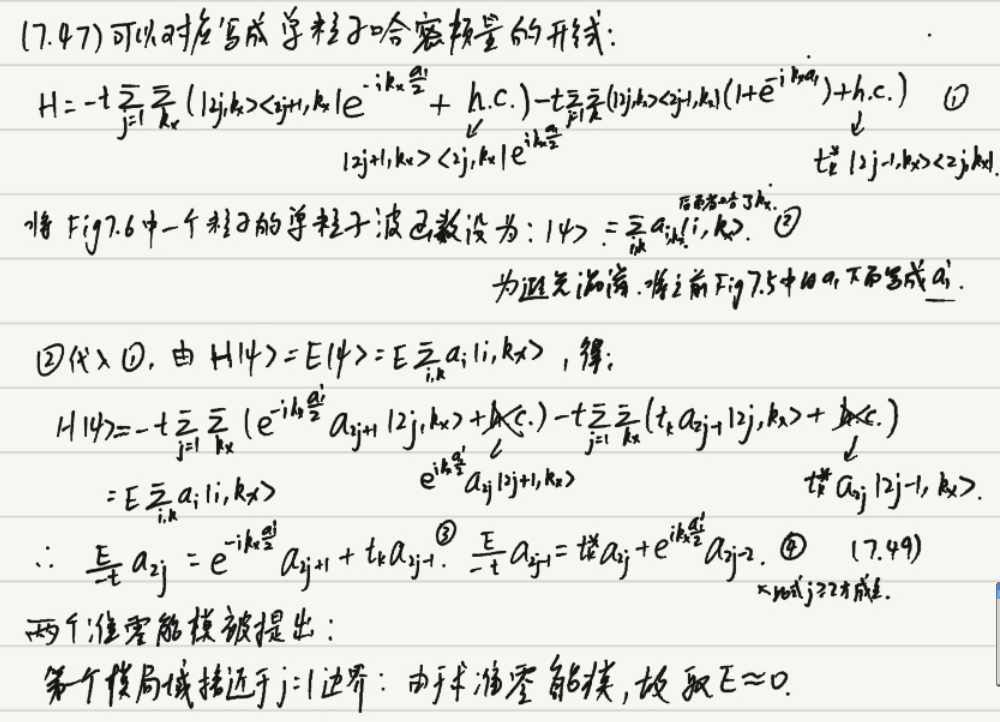 (7.47)可以对应写成单粒子哈密顿量的形式:
H = -t Σ_{j=1} Σ_{kx} (|2j,kx><2j+1,kx|e^{-ikx a₁'/2} + h.c.) - t Σ_{j=1} Σ_{k} (|2j,kx><2j-1,kx|(1+e^{-ikxa₁})+h.c.) ①
|2j+1,kx><2j,kx|e^{ikx a₁'/2} t_k^*|2j-1,kx><2j,kx|.
将 Fig7.6中一个粒子的单粒子波函数设为: |ψ> = Σ_{i,k} a_{i,kx}|i,kx>. ②
后面省略了kx.
为避免混淆.将之前Fig7.5中的a₁下面写成a₁'.
②代入①, 由 H|ψ>=E|ψ>=E Σ_{i,k} a_i|i,kx>, 得:
H|ψ>=-t Σ_{j=1} Σ_{kx} (e^{-ikx a₁'/2} a_{2j+1}|2j,kx>+h.c.) - t Σ_{j=1} Σ_{kx} (t_k a_{2j-1}|2j,kx>+h.c.)
= E Σ_{i,k} a_i|i,kx> e^{ikx a₁'/2} a_{2j}|2j+1,kx> t_k^* a_{2j}|2j-1,kx>.
∴ E/-t a_{2j} = e^{-ikx a₁'/2} a_{2j+1} + t_k a_{2j-1}. ③ E/-t a_{2j-1} = t_k^* a_{2j} + e^{ikx a₁'/2} a_{2j-2}. ④ (7.49)
j≥2才成立.
两个准零能模被提出:
第一个模局域接近于j=1边界: 由于求准零能模,故取E≈0.